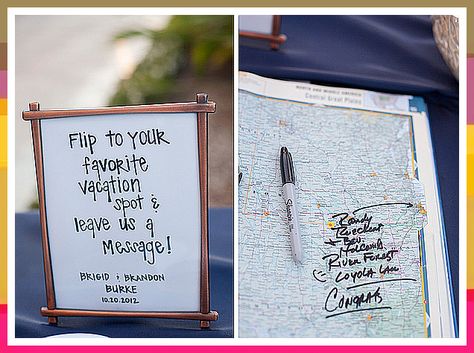 Flip to YOUR
favorite
vacation
spot &
leave us a
Message!
BRIGID & BRANDON
BURKE
10.20.2012
NORTH AND MIDDLE AMERICA
Central Great Plains
Sharpie
Randy
Bev
River Forest
Loyola Law
Congrats